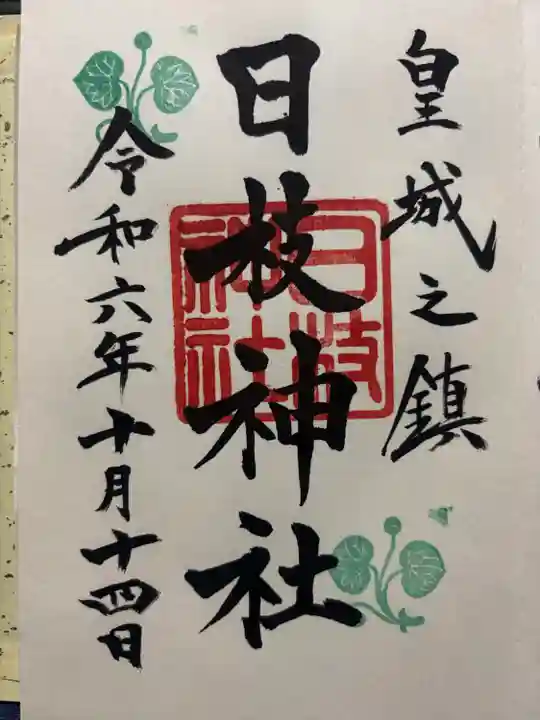 皇城之鎮
日枝神社
日枝神社
令和六年十月十四日